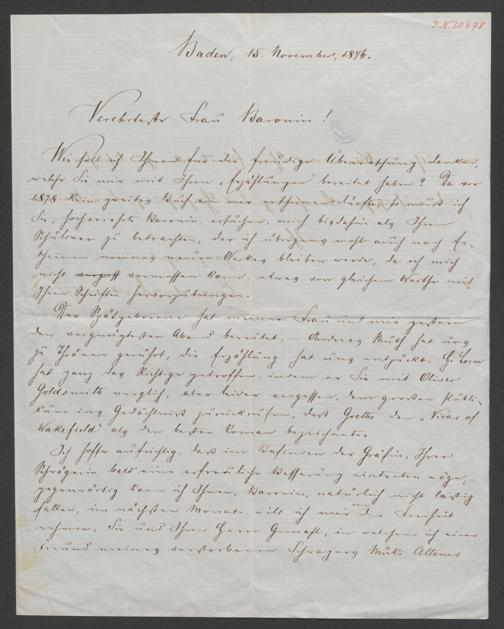 J.N. 60678
Baden, 15. November, 1876.
Verehrteste Frau Baronin!
Wie soll ich Ihnen für die freudige Überraschung danken,
welche Sie mir mit Ihren „Erzählungen“ bereitet haben? Da vor
1878 kein zweites Buch von mir erscheinen dürfte, so muß ich
Sie, hochverehrte Baronin, ersuchen, mich bis dahin als Ihren
Schuldner zu betrachten, der ich übrigens wohl auch nach Er-
scheinen meines neuen Werkes bleiben werde, da ich mich
nicht vermessen kann, etwas von gleichem Werthe mit
Ihren Schriften hervorzubringen.
Der Spätgeborene hat meiner Frau und mir gestern
den vergnügtesten Abend bereitet, Andreas Muth hat uns
zu Thränen gerührt, die Erzählung hat uns entzückt. H. Lorm
hat ganz das Richtige getroffen, indem er Sie mit Oliver
Goldsmith verglich, aber leider vergessen, dem großen Publi-
kum ins Gedächtniß zurückzurufen, daß Goethe den „Vicar of
Wakefield“ als den besten Roman bezeichnete.
Ich hoffe aufrichtig, daß im Befinden der Gräfin, Ihrer
Schwägerin bald eine erfreuliche Besserung eintreten möge,
gegenwärtig kann ich Ihnen, Baronin, natürlich nicht lästig
fallen, im nächsten Monate will ich mir die Freiheit
nehmen, Sie und Ihren Herrn Gemahl, in welchem ich einen
Freund meines verstorbenen Schwagers Muki Altener